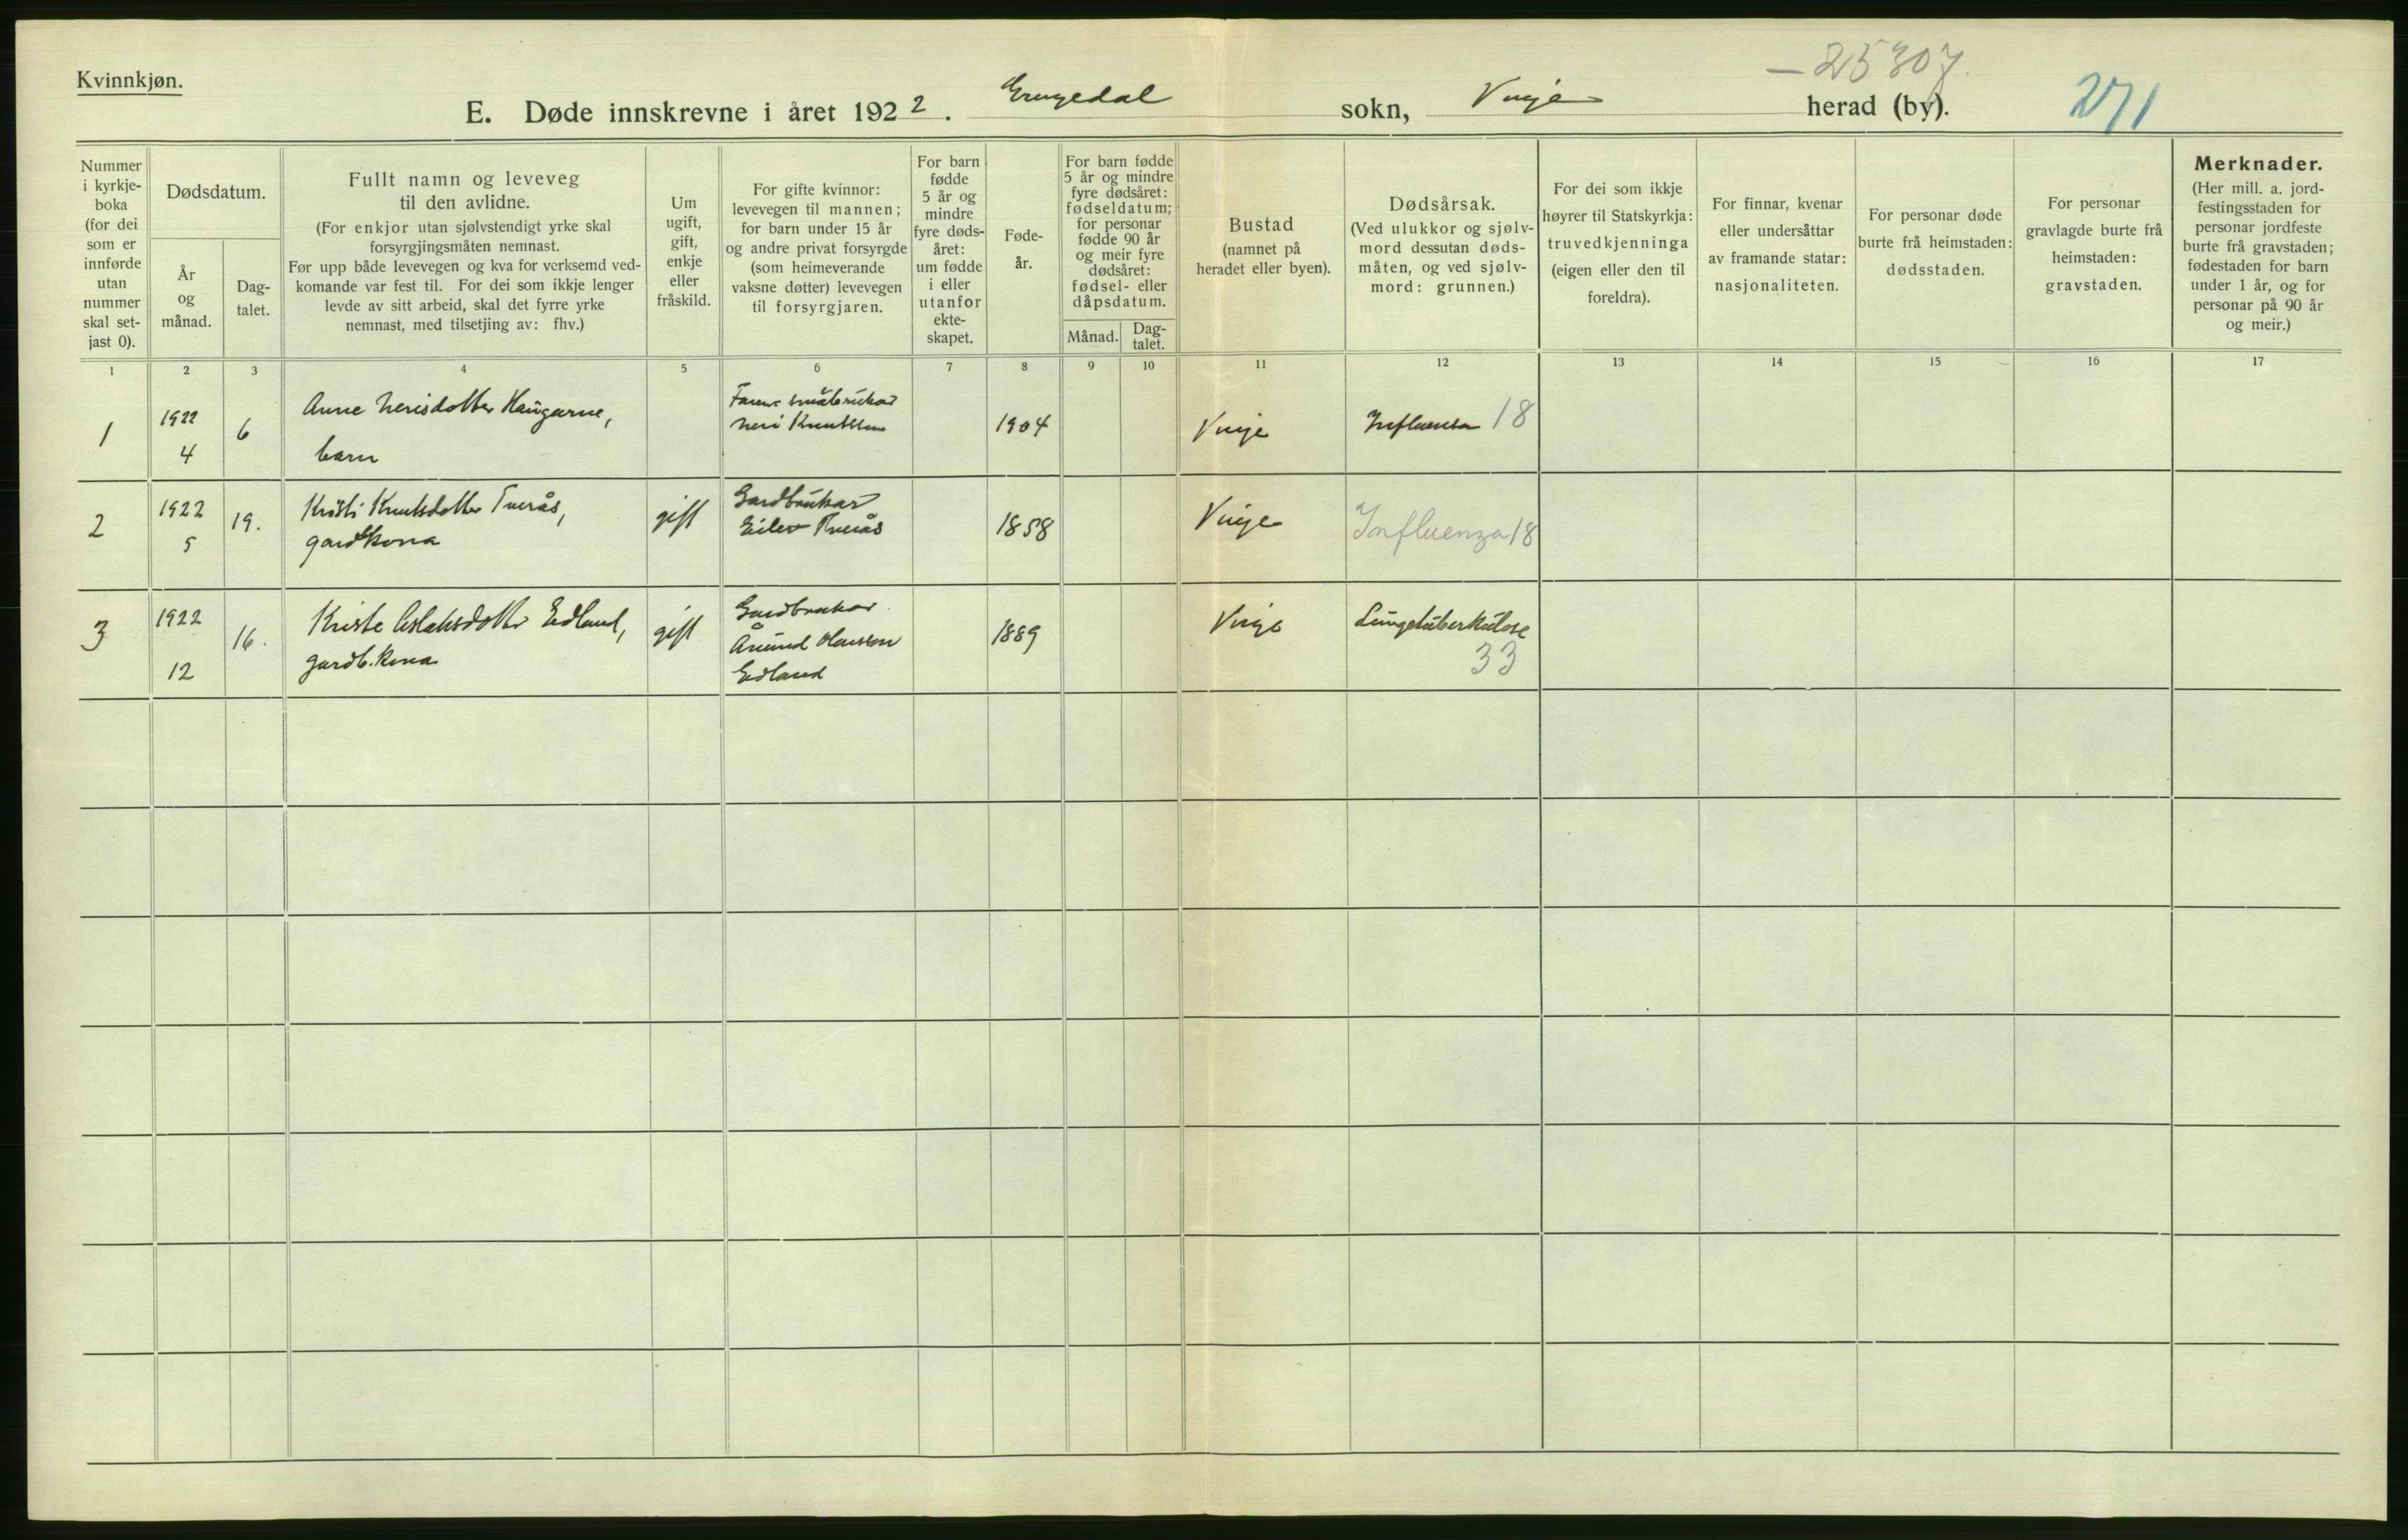 Kvinnkjøn.
— 25307.
271
E. Døde innskrevne i året 1922. Grungedal sokn, Vinje herad (by).
Nummer
i kyrkje-
boka
(for dei
som er
innførde
utan
nummer
skal set-
jast 0).
Dødsdatum.
År
og
månad.
Dag-
talet.
Fullt namn og leveveg
til den avlidne.
(For enkjor utan sjølvstendigt yrke skal
forsyrgjingsmåten nemnast.
Før upp både levevegen og kva for verksemd ved-
komande var fest til. For dei som ikkje lenger
levde av sitt arbeid, skal det fyrre yrke
nemnast, med tilsetjing av: fhv.)
Um
ugift,
gift,
enkje
eller
fråskild.
For gifte kvinnor:
levevegen til mannen;
for barn under 15 år
og andre privat forsyrgde
(som heimeverande
vaksne døtter) levevegen
til forsyrgjaren.
For barn
fødde
5 år og
mindre
fyre døds-
året:
um fødde
i eller
utanfor
ekte-
skapet.
Føde-
år.
For barn fødde
5 år og mindre
fyre dødsåret:
fødseldatum;
for personar
fødde 90 år
og meir fyre
dødsåret:
fødsel- eller
dåpsdatum.
Månad.
Dag-
talet.
Bustad
(namnet på
heradet eller byen).
Dødsårsak.
(Ved ulukkor og sjølv-
mord dessutan døds-
måten, og ved sjølv-
mord: grunnen.)
For dei som ikkje
høyrer til Statskyrkja:
truvedkjenninga
(eigen eller den til
foreldra).
For finnar, kvenar
eller undersåttar
av framande statar:
nasjonaliteten.
For personar døde
burte frå heimstaden:
dødsstaden.
For personar
gravlagde burte frå
heimstaden:
gravstaden.
Merknader.
(Her mill. a. jord-
festingsstaden for
personar jordfeste
burte frå gravstaden;
fødestaden for barn
under 1 år, og for
personar på 90 år
og meir.)
1 2 3 4 5 6 7 8 9 10 11 12 13 14 15 16 17
1
1922
4
6
Anne Nerisdotter Haugarne,
barn
småbrukar
Neri Knutsson
1904
Vinje
Influensa 18
2
1922
5
19.
Kristi Knutsdotter Tverås,
gardkona
gift
Gardbrukar
Eilev Tverås
1858
Vinje
Influenza 18
3
1922
12
16.
Kriste Aslaksdotter Edland,
gardb.kona
gift
Gardbrukar
Åmund Olavsson
Edland
1889
Vinje
Lungetuberkulose
33